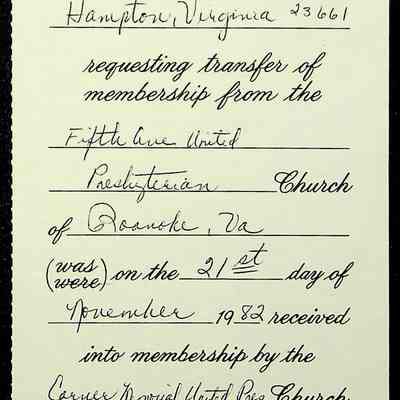 Hampton, Virginia 23661
requesting transfer of
membership from the
Fifth Ave United
Presbyterian Church
of Roanoke, Va
(was
were) on the 21st day of
November 1982 received
into membership by the
Carver Memorial United Pres Church